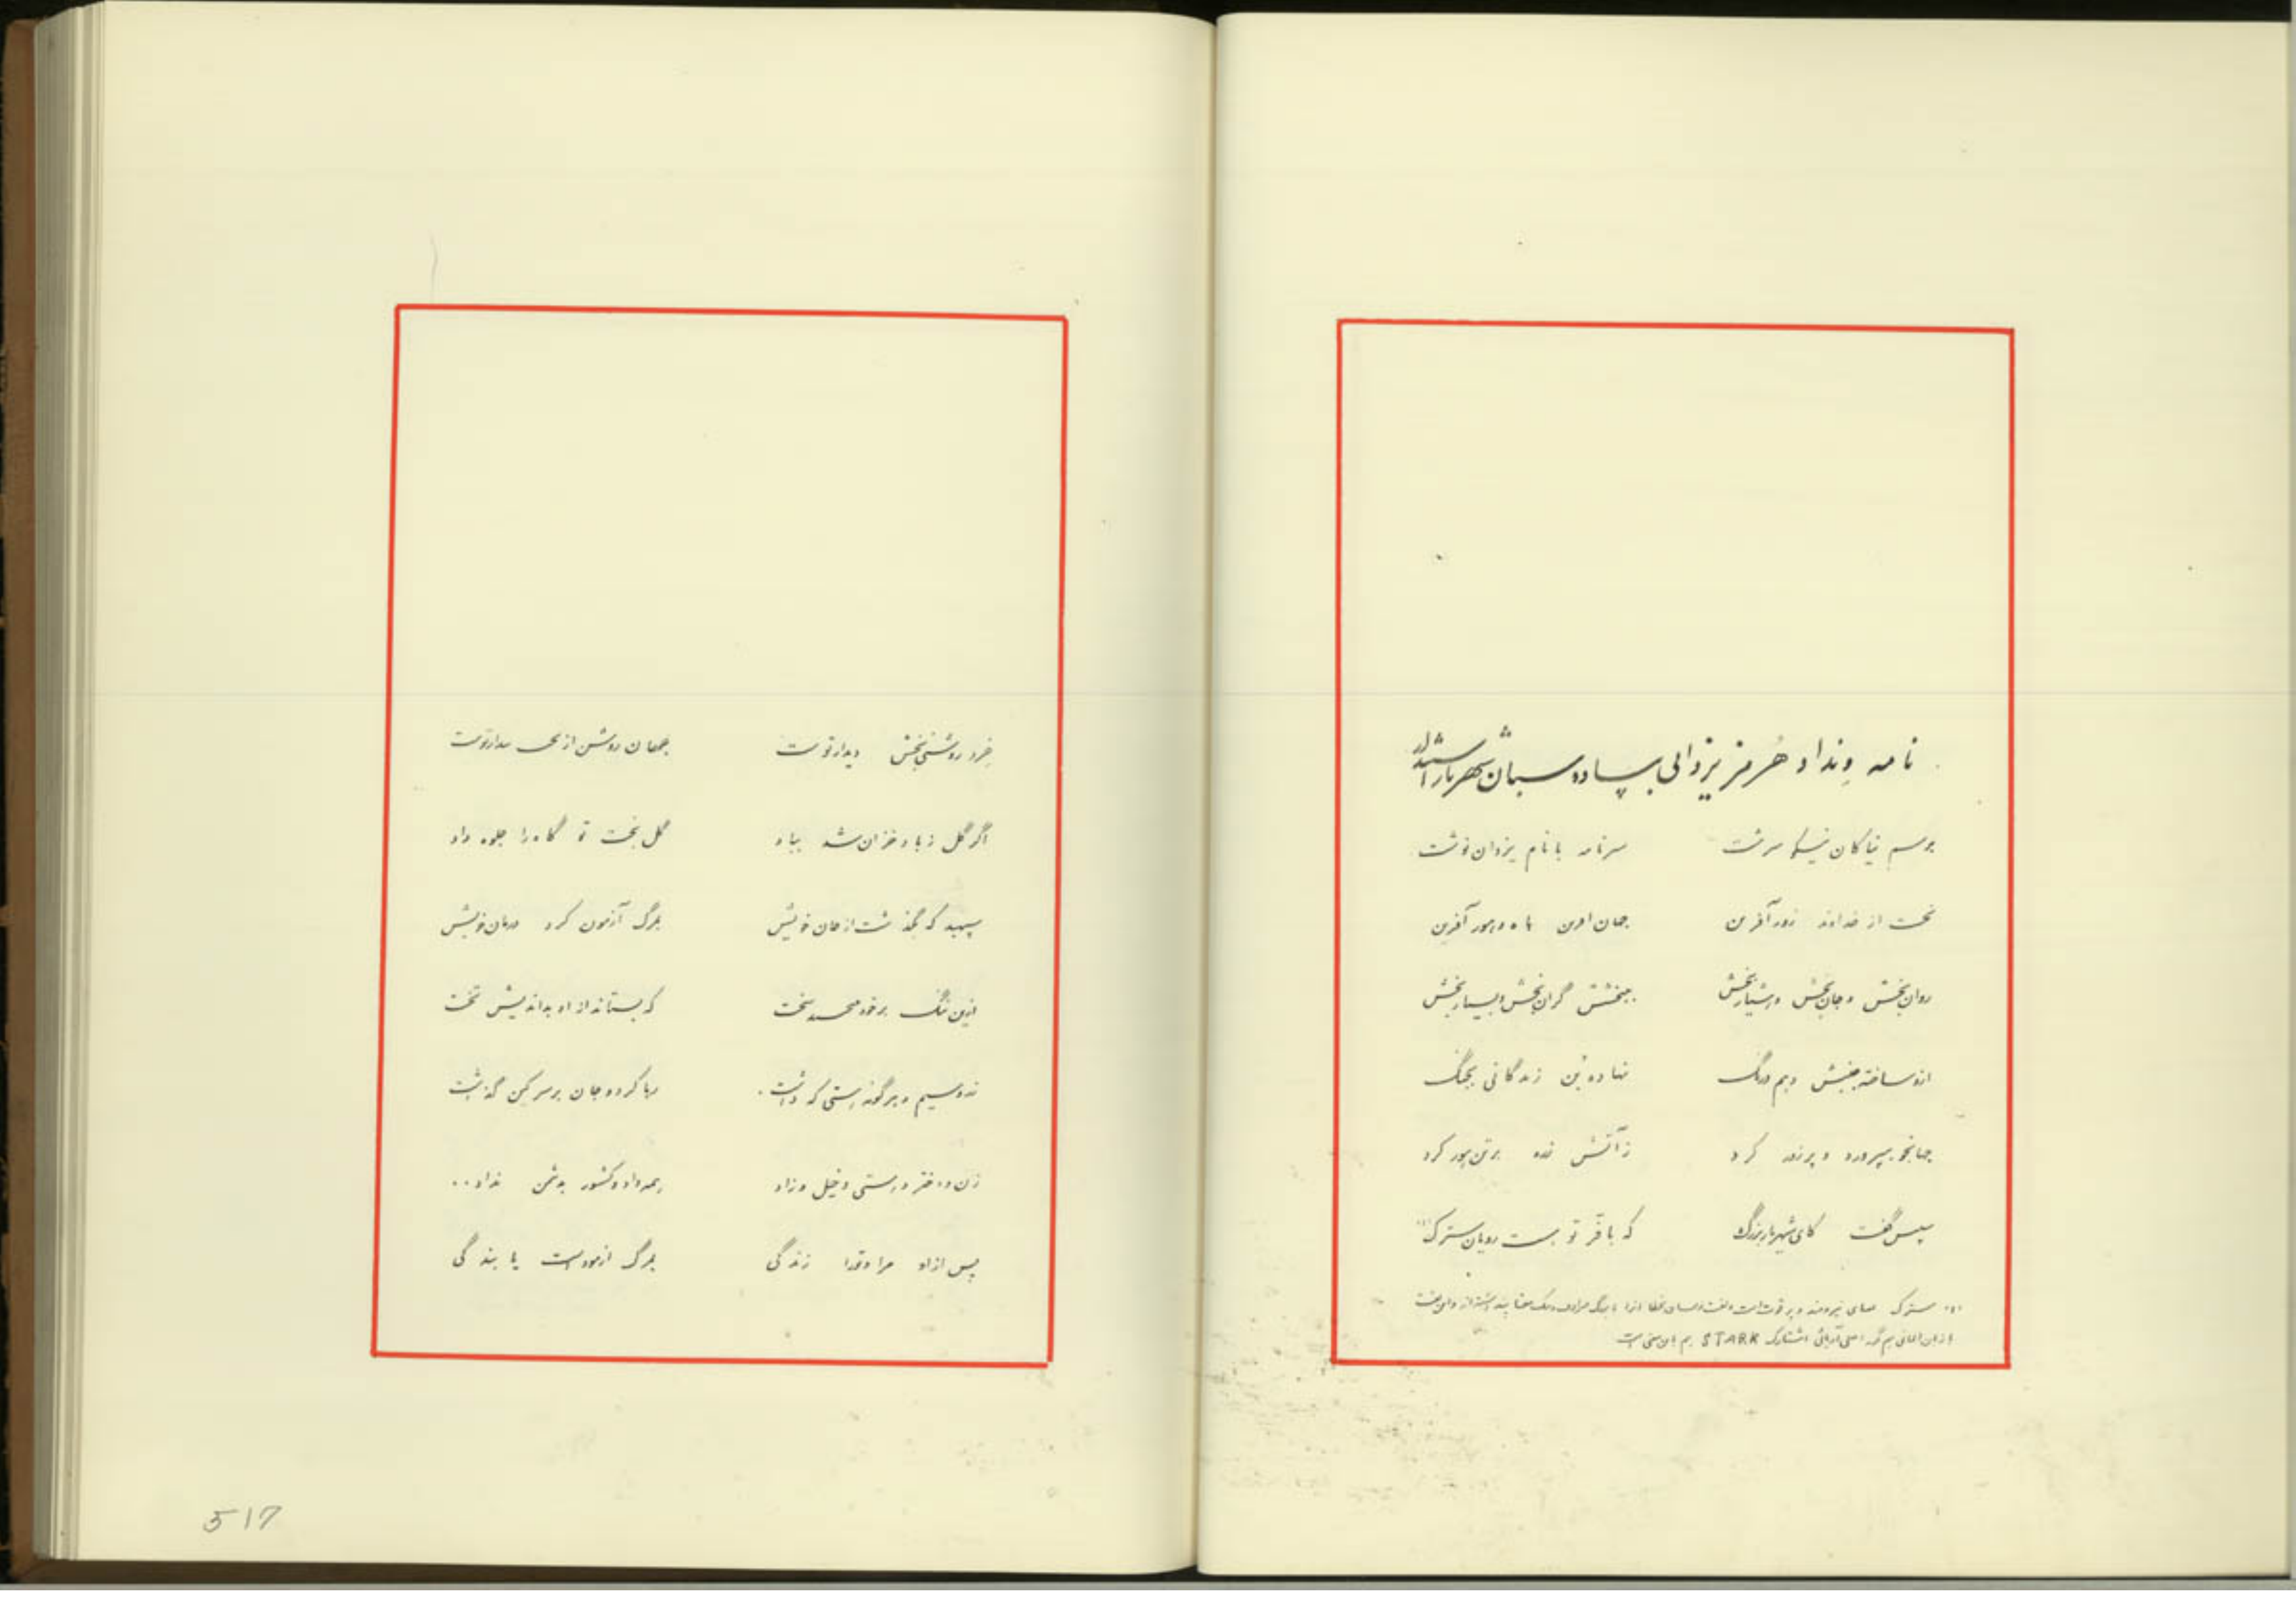 نامه ونداد هرمز یزدانی بپسادوسبان شهریار
برسم نیاکان نیکو سرشت سرنامه با نام یزدان نوشت
نخست از خداوند زور آفرین جهان آفرین ماه و هور آفرین
روان بخش و جان بخش و هشیار بخش ببخشش گران بخش و بسیار بخش
ازو ساخته جنبش و هم درنگ نهاده بن زندگانی بجنگ
جهانجو بپرورد و پرزور کرد ز آتش زره برتن پور کرد
سپس گفت کای شهریار بزرگ که با فر تو هست رویان سترک (۱)
(۱) سترک نیرومند و پر قوت است
STARK هم باین معنی است
خرد روشنی بخش دیدار تست جهان روشن از تست
اگر گل ز باد خزان شد بباد گل بخت تو گاه را جلوه داد
سپهبد که بگذشت از جان خویش بمرگ آزمون کرد درمان خویش
ازین ننگ برخود سخت که بستاند از او بداندیش تخت
زر و سیم و هرگونه هستی که داشت رها کرد و جان بر سر کین گذاشت
زن و دختر و هستی و خیل و زاد همه داد و کشور بدشمن نداد..
پس از او مرا و ترا زندگی بمرگ ازمودست یا بندگی
517